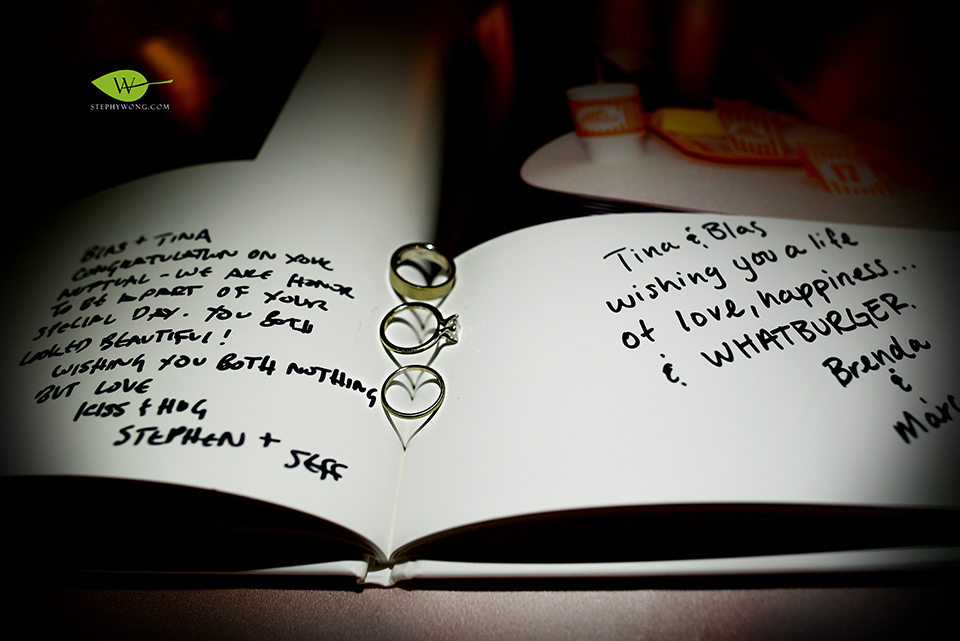 W
STEPHYWONG.COM
BLAS + TINA
CONGRATULATION ON YOUR
NUPTUAL - WE ARE HONOR
TO BE A PART OF YOUR
SPECIAL DAY. YOU BOTH
LOOKED BEAUTIFUL!
WISHING YOU BOTH NOTHING
BUT LOVE
KISS + HUG
STEPHEN +
JEFF
Tina & Blas
wishing you a life
of love, happiness...
& WHATBURGER.
Brenda
&